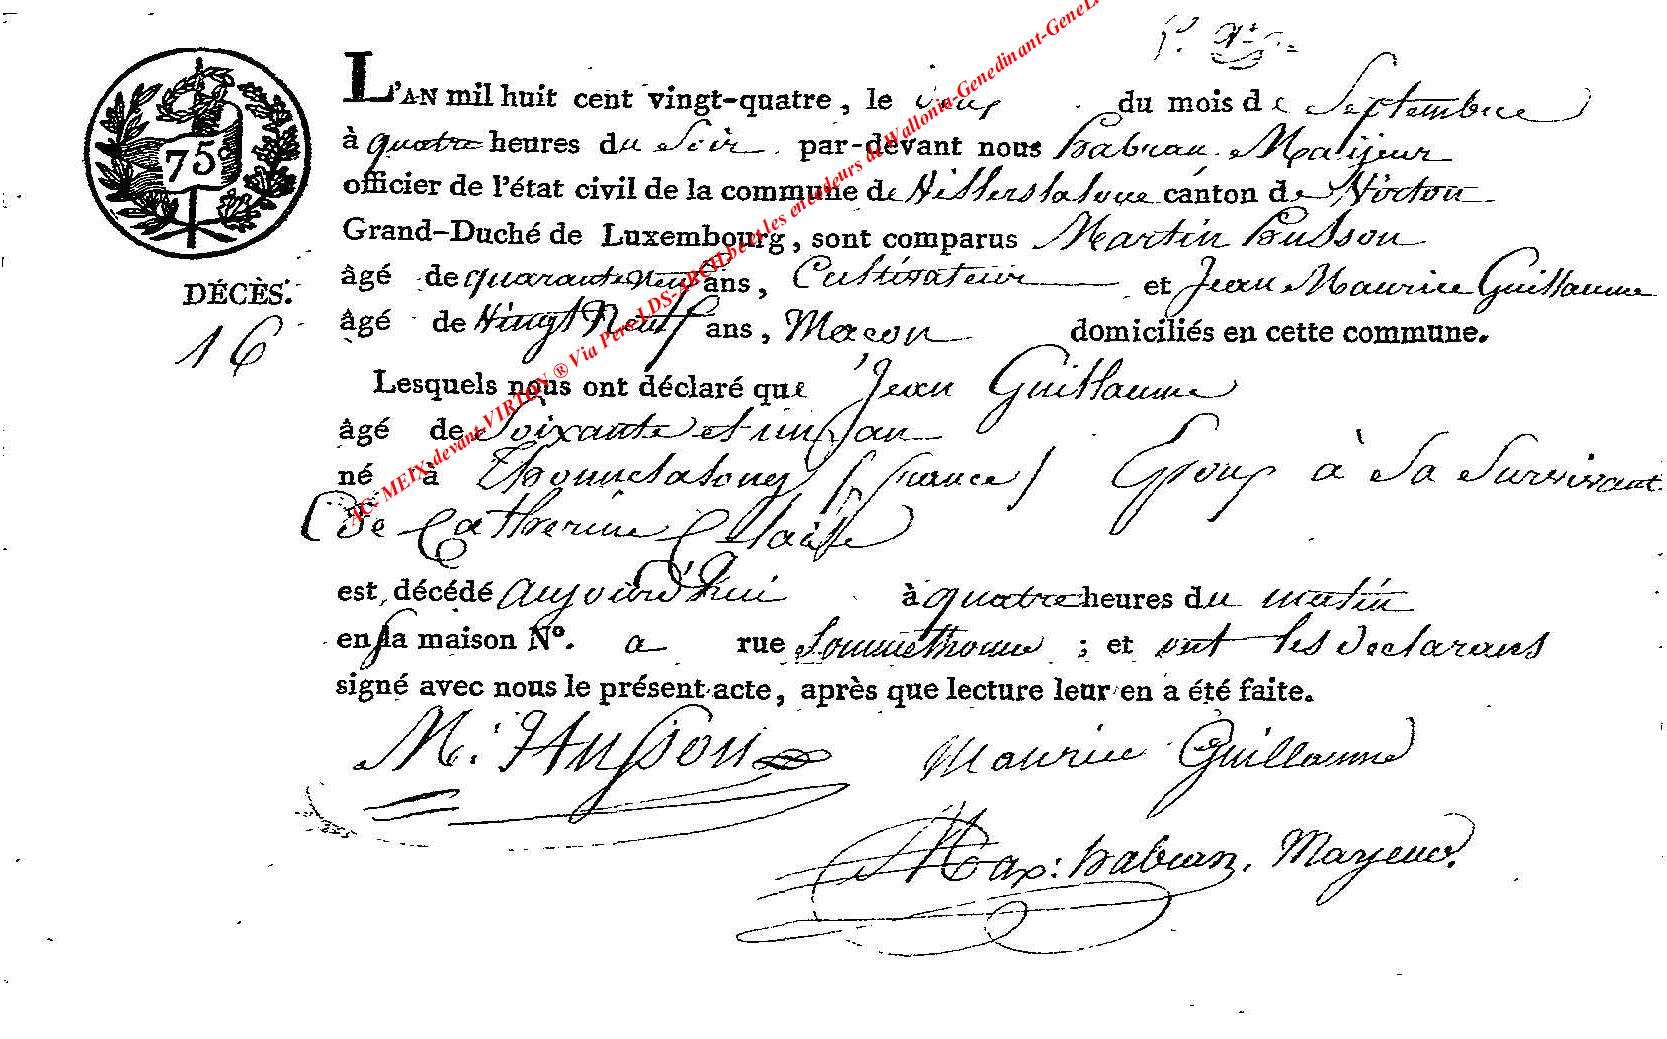 L'AN mil huit cent vingt-quatre, le du mois de Septembre
à quatre heures du Soir par-devant nous habran Maÿeur
officier de l'état civil de la commune de Villerslaloue canton de Virton
Grand-Duché de Luxembourg, sont comparus Martin husson
âgé de quarante neuf ans, Cultivateur et Jean Maurice Guillaume
DÉCÈS.
âgé de Vingt Neuf ans, Macon domiciliés en cette commune.
16
Lesquels nous ont déclaré que Jean Guillaume
âgé de Soixante et un an
né à Thonnelalong (france) Epoux à Sa Survivant
De Catherine
est décédé aujourd'hui à quatre heures du matin
en sa maison N°. a rue Sommethonne ; et ont les déclarans
signé avec nous le présent acte, après que lecture leur en a été faite.
M. Husson Maurice Guillaume
Max: habran, Mayeur.
75
AC: MEIX-devant-VIRTON ® Via Pere LDS-ARCH.be et les encodeurs de Wallonia-Genedinant-GeneL